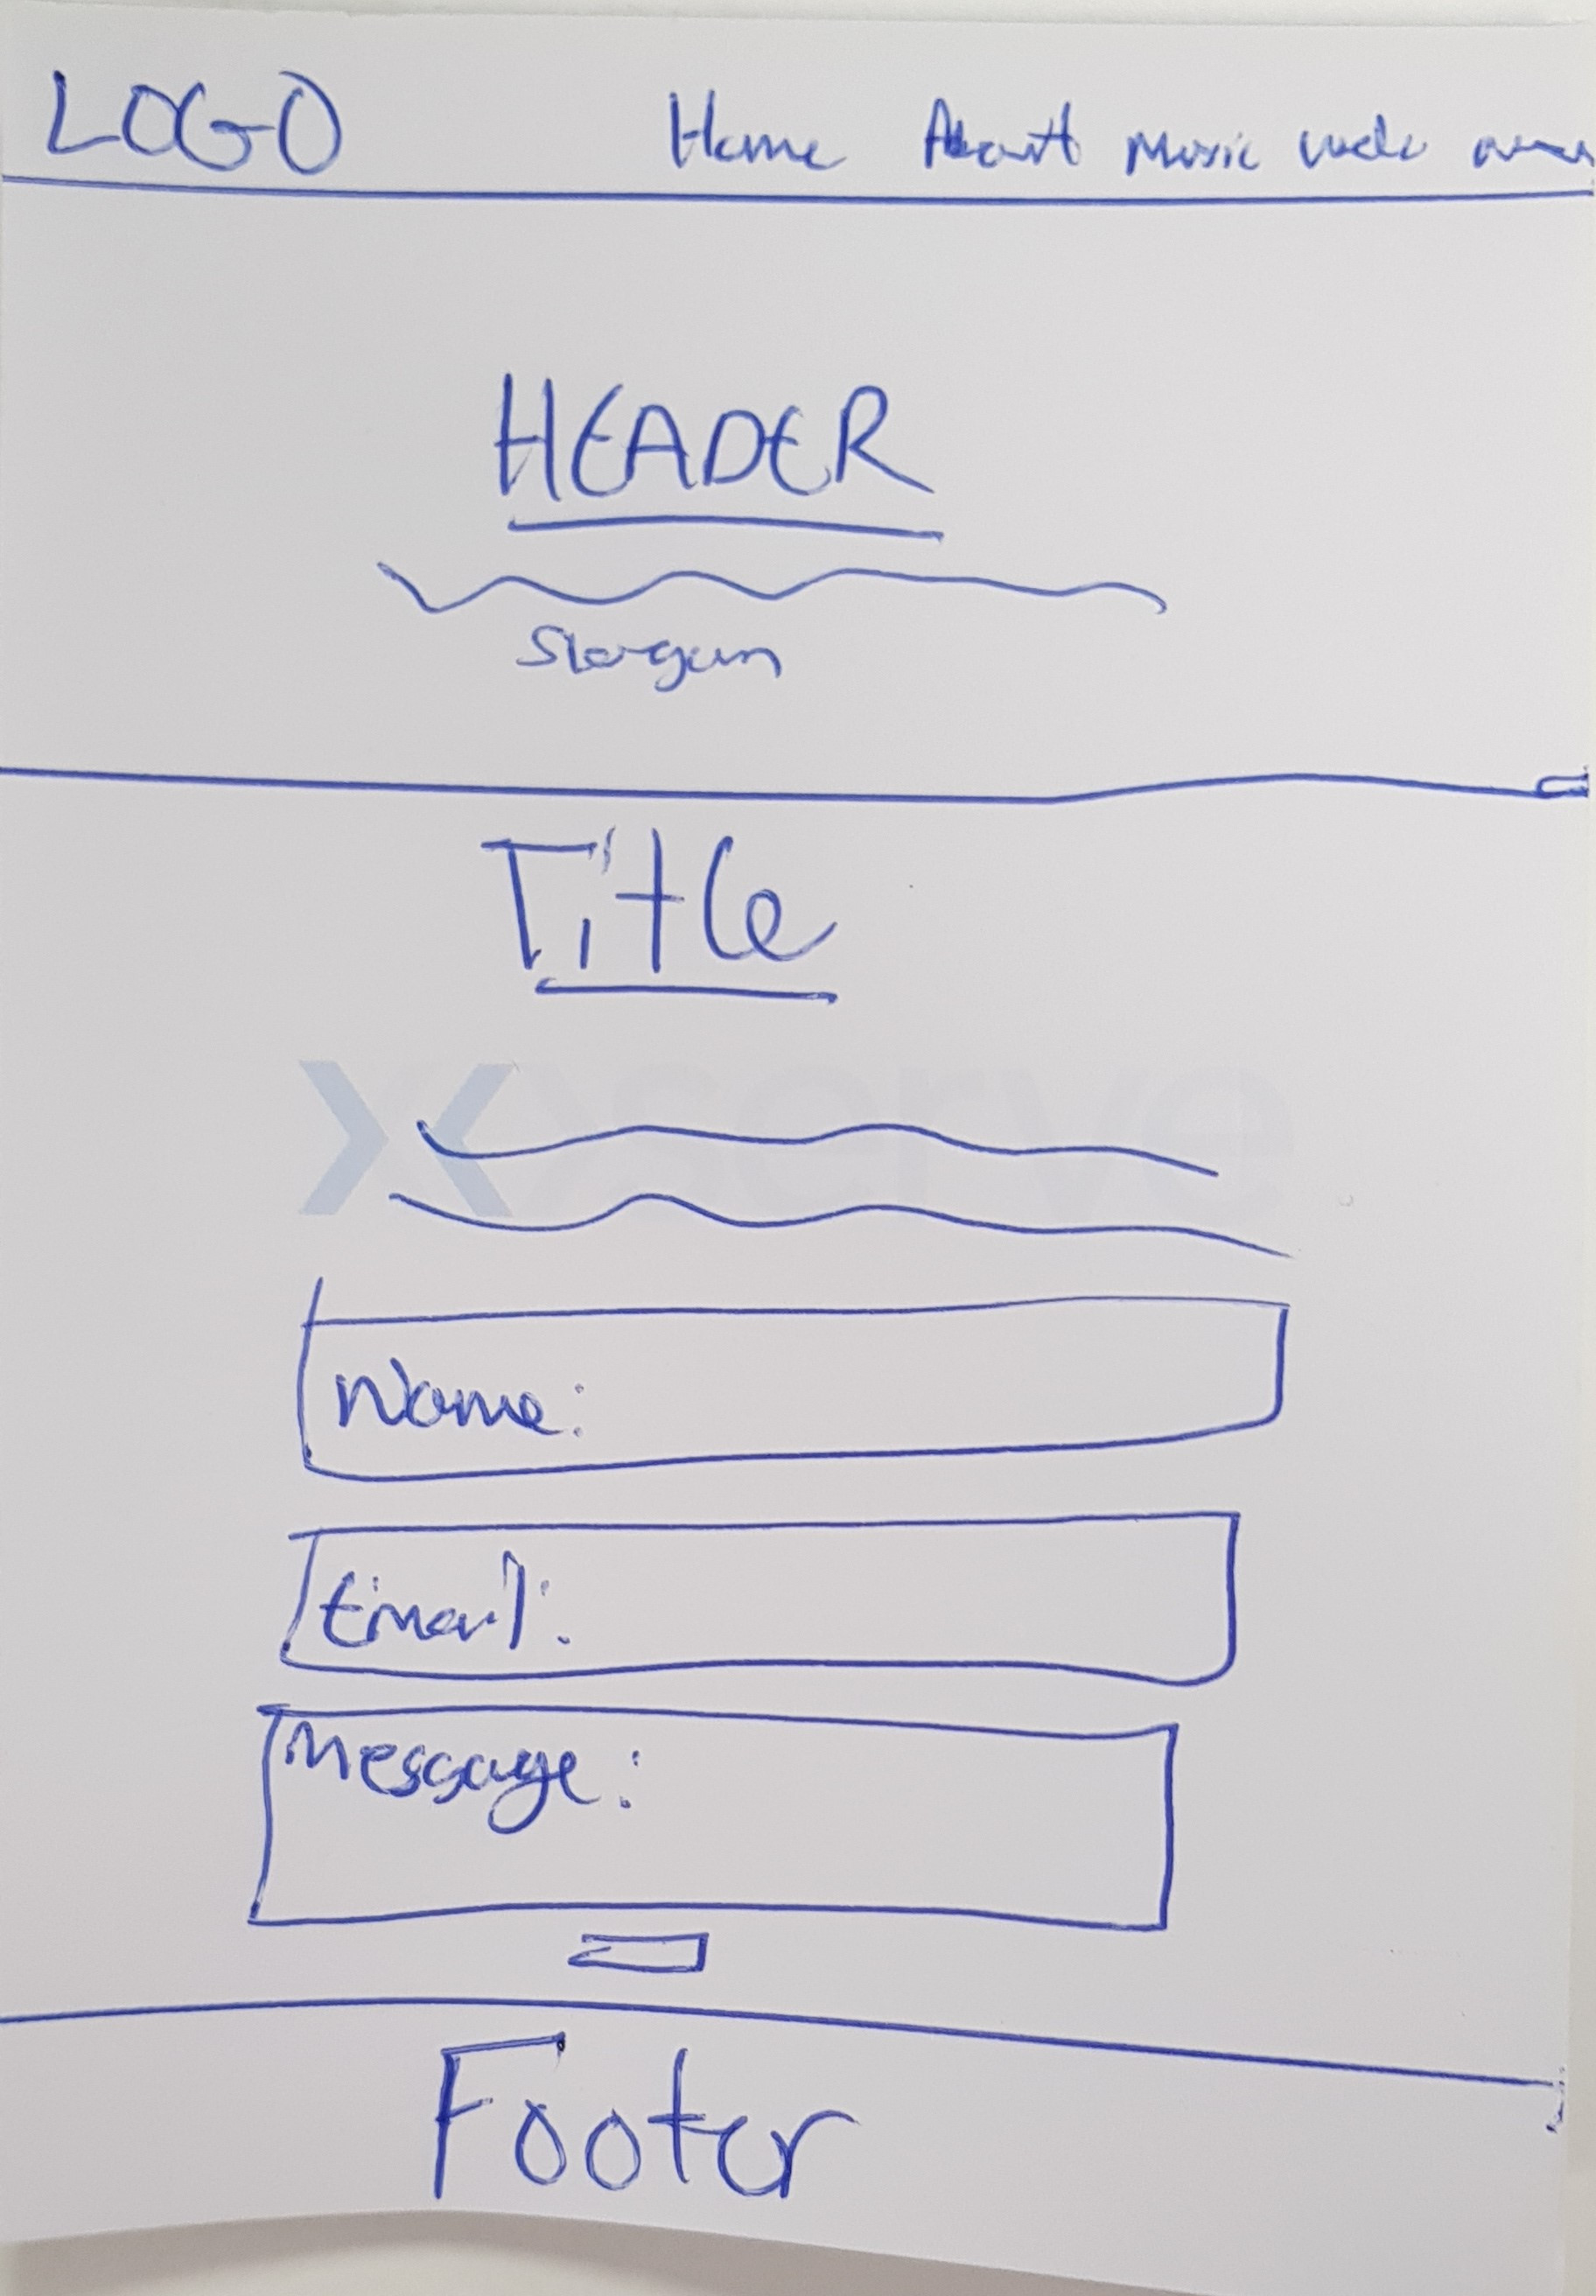 LOGO Home About Music
HEADER
Slogan
Title
serve
Name:
Email:
Message:
Footer